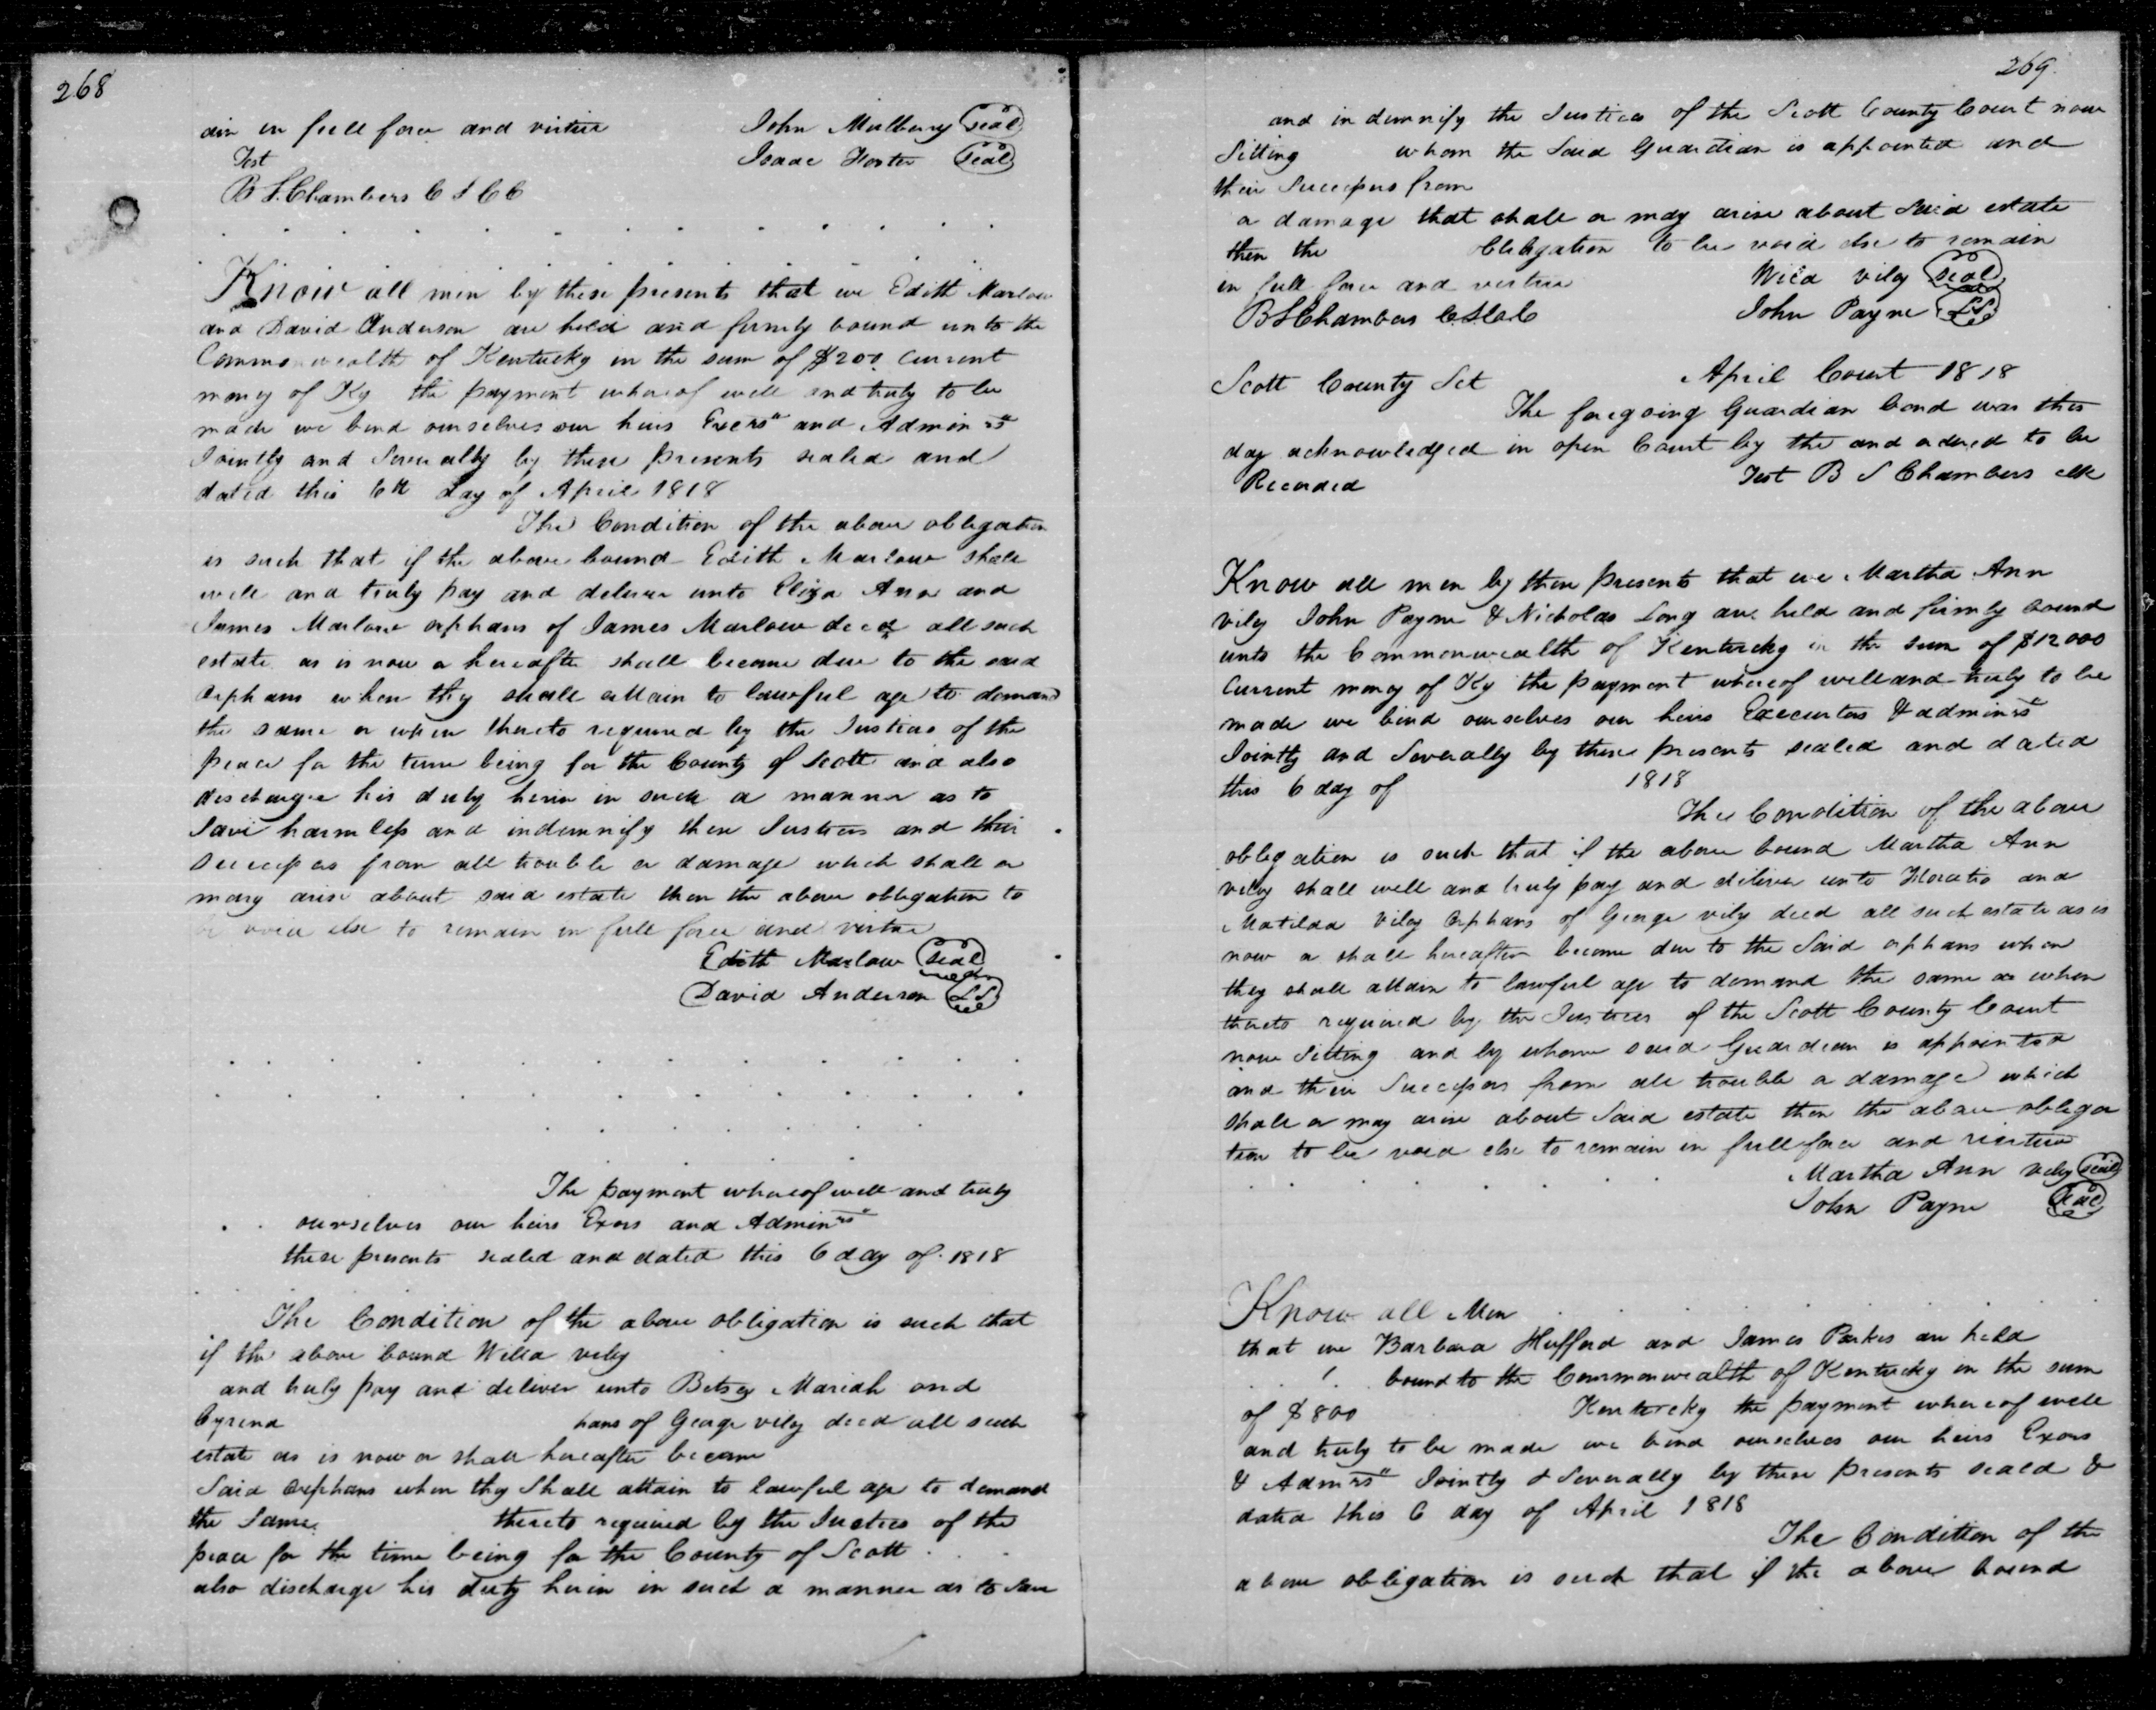 268
ain in full force and virtue John Mulberry seal
Test Isaac Foster seal
B S. Chambers C S C C
Know all men by these presents that we Edith Marlow
and David Anderson are held and firmly bound unto the
Commonwealth of Kentucky in the sum of $200. Current
money of Ky the payment whereof well and truly to be
made we bind ourselves our heirs Exers" and Admin rs"
Jointly and Severally by these presents sealed and
dated this 6th day of April 1818
The Condition of the above obligation
is such that if the above bound Edith Marlow shall
well and truly pay and deliver unto Eliza Ann and
James Marlow orphans of James Marlow decd all such
estate as is now or hereafter shall become due to the said
orphans when they shall attain to lawful age to demand
the same or when thereto required by the Justices of the
peace for the time being for the County of Scott and also
discharge his duty herein in such a manner as to
Save harmless and indemnify then Justices and their
Successors from all trouble or damage which shall or
may arise about said estate then the above obligation to
be void else to remain in full force and virtue
Edith Marlow seal
David Anderson LS
The payment whereof well and truly
ourselves our heirs Exors and Admin rs"
these presents sealed and dated this 6 day of 1818
The Condition of the above obligation is such that
if the above bound Willa viley
and truly pay and deliver unto Betsey Mariah and
Cyrena hans of George viley decd all such
estate as is now or shall hereafter become
Said orphans when they Shall attain to lawful age to demand
the Same thereto required by the Justices of the
peace for the time being for the County of Scott
also discharge his duty herein in such a manner as to save
269.
and indemnify the Justices of the Scott County Court now
Sitting whom the Said Guardian is appointed and
their Successors from
or damage that shall or may arise about Said estate
then the Obligation to be void else to remain
in full force and virtue Willa viley seal
B S Chambers C S C C John Payne LS
Scott County Sct April Court 1818
The foregoing Guardian bond was this
day acknowledged in open Court by the and ordered to be
Recorded Test B S Chambers clk
Know all men by these presents that we Martha Ann
viley John Payne & Nicholas Long are held and firmly bound
unto the Commonwealth of Kentucky in the sum of $12000
Current money of Ky the payment whereof well and truly to be
made we bind ourselves our heirs Executors & admin rs"
Jointly and Severally by these presents sealed and dated
this 6 day of 1818
The Condition of the above
obligation is such that if the above bound Martha Ann
viley shall well and truly pay and deliver unto Horatio and
Matilda Viley Orphans of George viley decd all such estate as is
now or shall hereafter become due to the Said orphans when
they shall attain to lawful age to demand the same or when
thereto required by the Justices of the Scott County Court
now Sitting and by whom said Guardian is appointed
and their Successors from all trouble or damage which
Shall or may arise about Said estate then the above obliga
tion to be void else to remain in full force and virtue
Martha Ann viley seal
John Payne seal
Know all Men
that we Barbara Hufford and James Parks are held
bound to the Commonwealth of Kentucky in the sum
of $800 Kentucky the payment whereof well
and truly to be made we bind ourselves our heirs Exors
& Adm rs" Jointly & Severally by these presents seald &
dated this 6 day of April 1818
The Condition of the
above obligation is such that if the above bound